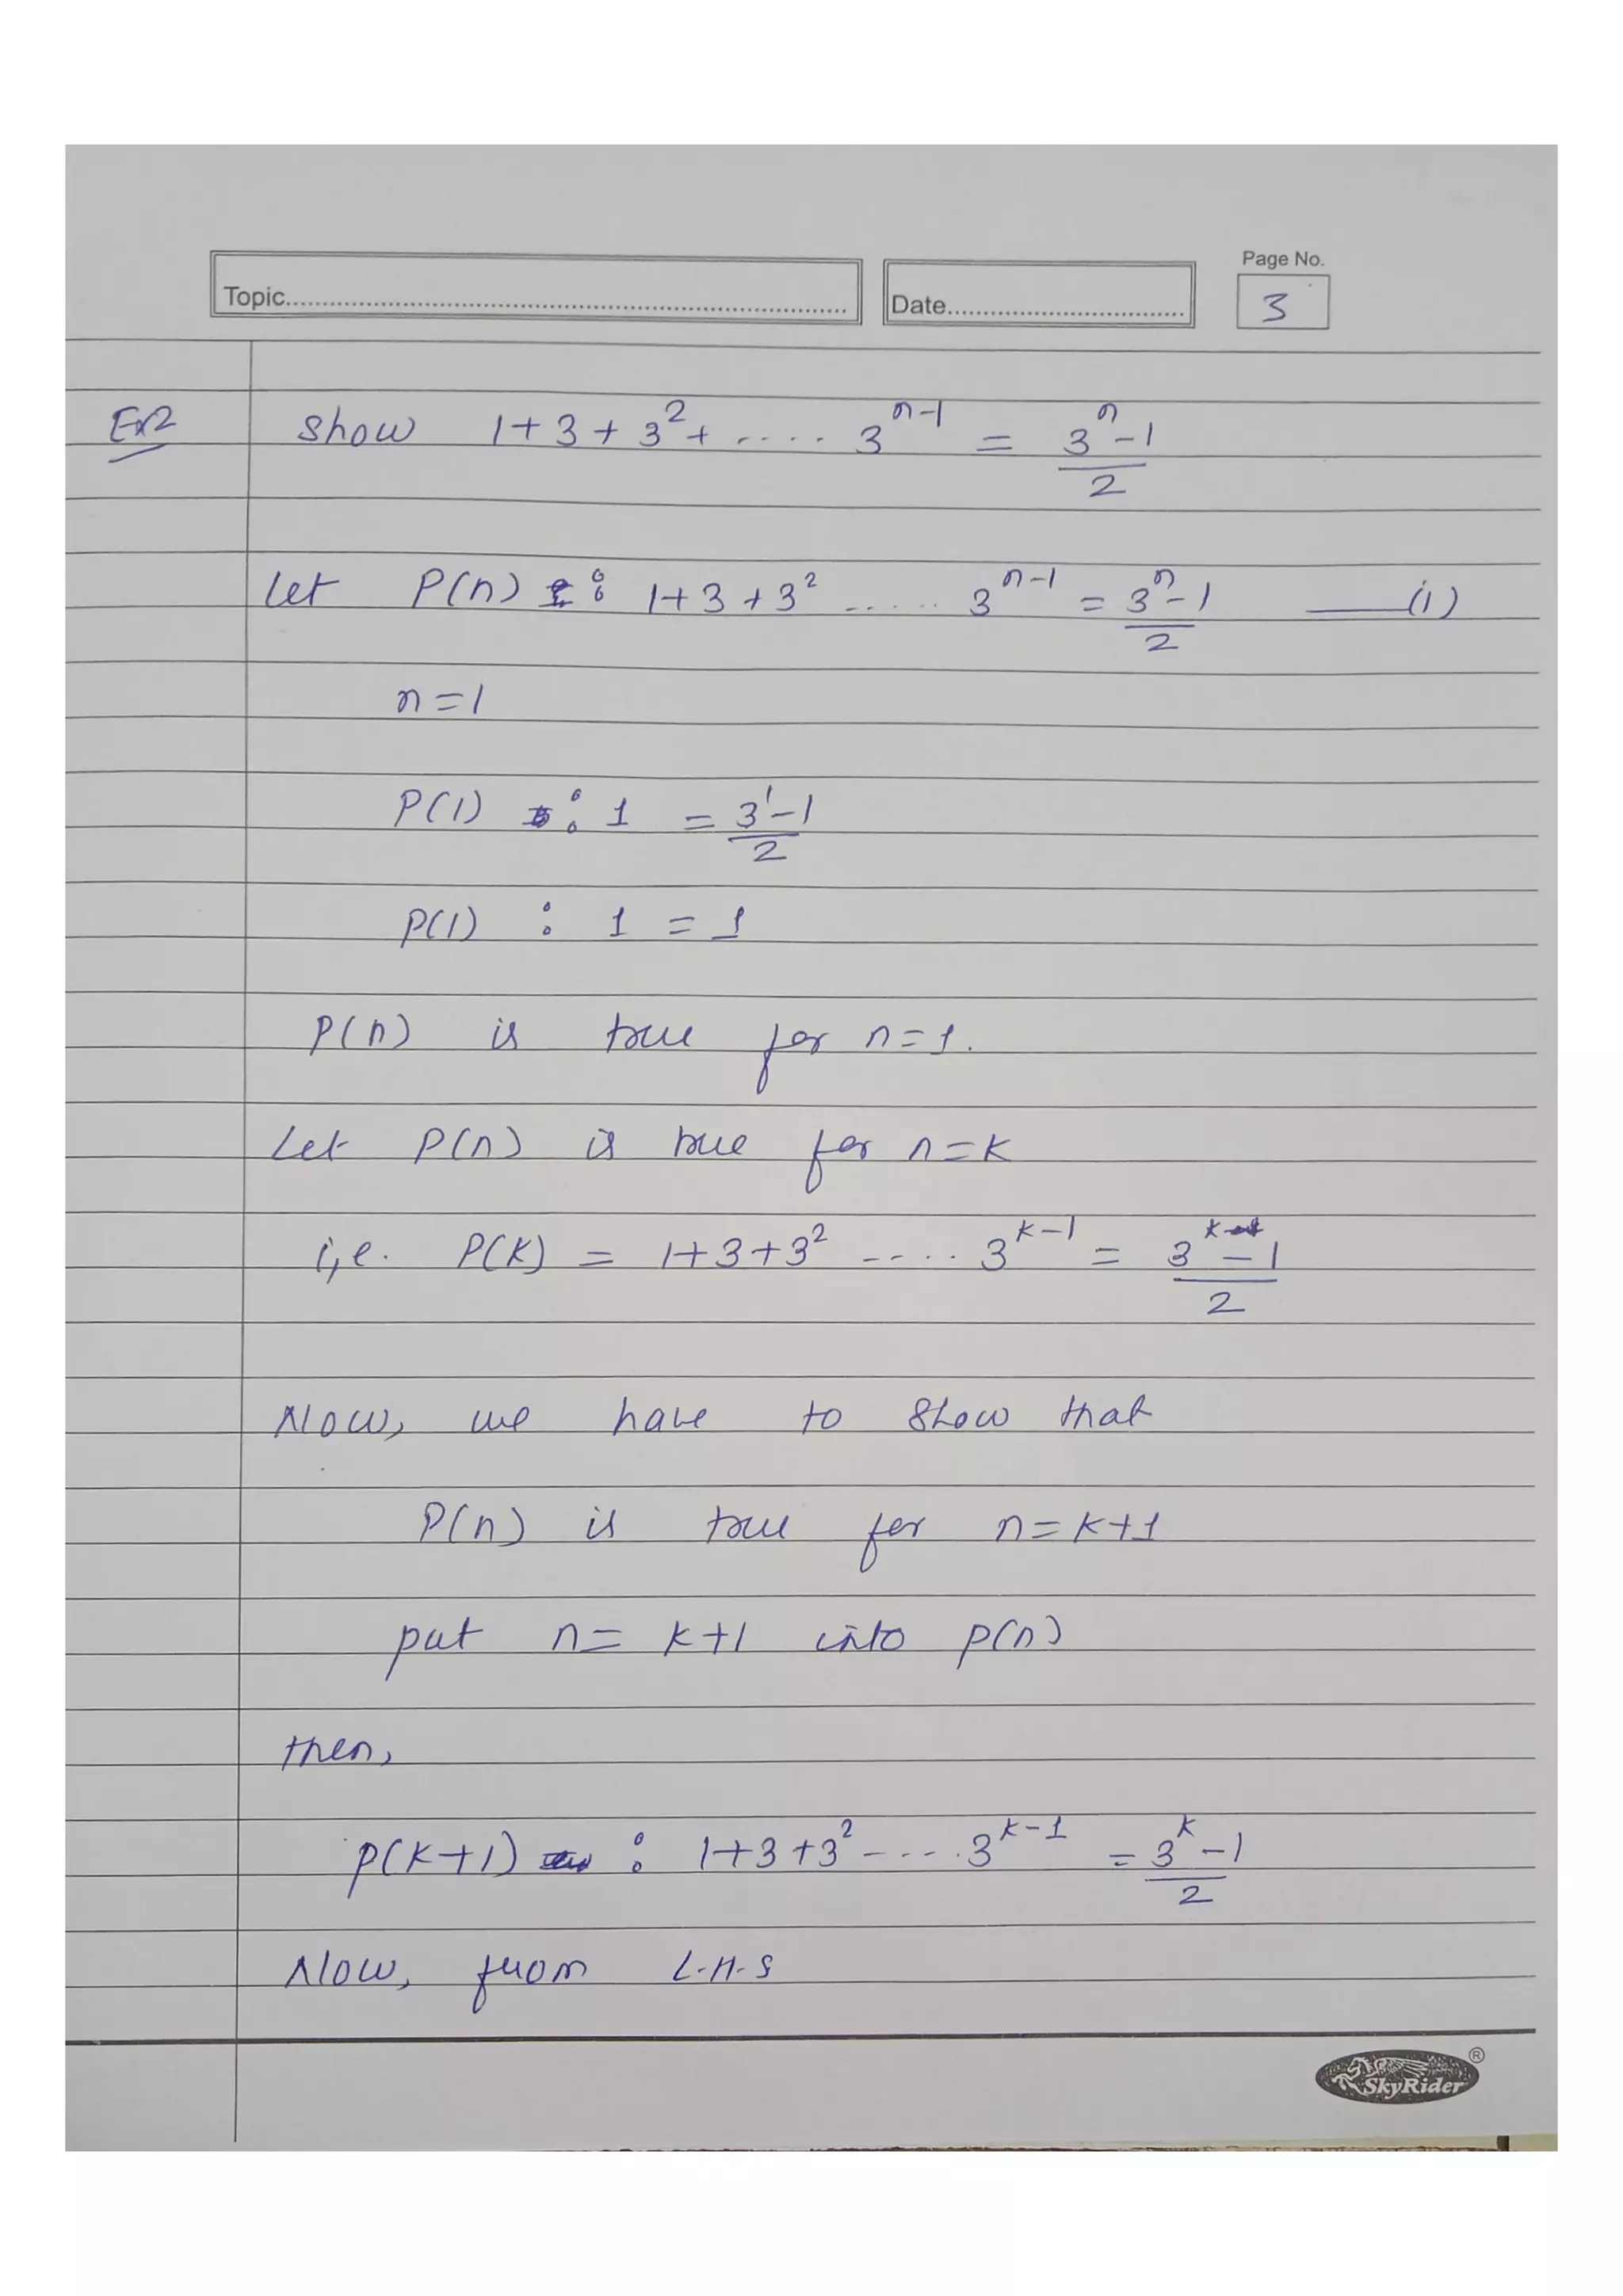 Page No.
Topic............ Date............ 3
Ex2 Show 1+3+3²+ ..... 3ⁿ⁻¹ = (3ⁿ-1)/2
Let P(n) : 1+3+3² ..... 3ⁿ⁻¹ = (3ⁿ-1)/2 —— (i)
n=1
P(1) : 1 = (3¹-1)/2
P(1) : 1 = 1
P(n) is true for n=1.
Let P(n) is true for n=k
i,e. P(k) = 1+3+3² ..... 3ᵏ⁻¹ = (3ᵏ-1)/2
Now, we have to show that
P(n) is true for n=k+1
put n= k+1 into p(n)
then,
p(k+1) : 1+3+3² ..... 3ᵏ⁻¹ = (3ᵏ-1)/2
Now, from L.H.S
SkyRider ®